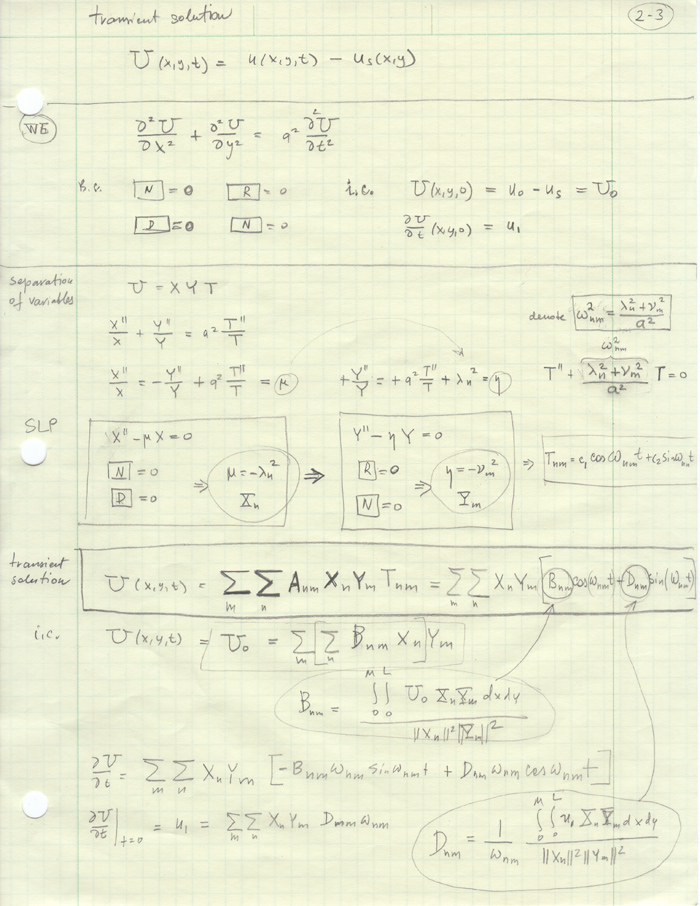 transient solution
2-3
U(x,y,t) = u(x,y,t) - u_s(x,y)
WE
∂²U/∂x² + ∂²U/∂y² = a² ∂²U/∂t²
B.C. [N] = 0 [R] = 0 i.c. U(x,y,0) = u₀ - u_s = U₀
[D] = 0 [N] = 0 ∂U/∂t (x,y,0) = u₁
separation of variables
U = X Y T
denote ω²_nm = (λ_n² + ν_m²)/a²
X''/X + Y''/Y = a² T''/T
ω²_nm
X''/X = -Y''/Y + a² T''/T = μ +Y''/Y = +a² T''/T + λ_n² = η T'' + (λ_n² + ν_m²)/a² T = 0
SLP
X'' - μX = 0 Y'' - ηY = 0
[N] = 0 [D] = 0 ⇒ μ = -λ_n² X_n ⇒ [R] = 0 [N] = 0 ⇒ η = -ν_m² Y_m ⇒ T_nm = c₁ cos ω_nm t + c₂ sin ω_n t
transient solution
U(x,y,t) = Σ_m Σ_n A_nm X_n Y_m T_nm = Σ_m Σ_n X_n Y_m [B_nm cos(ω_nm t) + D_nm sin(ω_nm t)]
i.c. U(x,y,t) = U₀ = Σ_m [Σ_n B_nm X_n] Y_m
B_nm = ∫₀^M ∫₀^L U₀ X_n Y_m dx dy / ||X_n||² ||Y_m||²
∂U/∂t = Σ_m Σ_n X_n Y_m [-B_nm ω_nm sin ω_nm t + D_nm ω_nm cos ω_nm t]
∂U/∂t |_{t=0} = u₁ = ΣΣ X_n Y_m D_nm ω_nm
D_nm = 1/ω_nm ∫₀^M ∫₀^L u₁ X_n Y_m dx dy / ||X_n||² ||Y_m||²